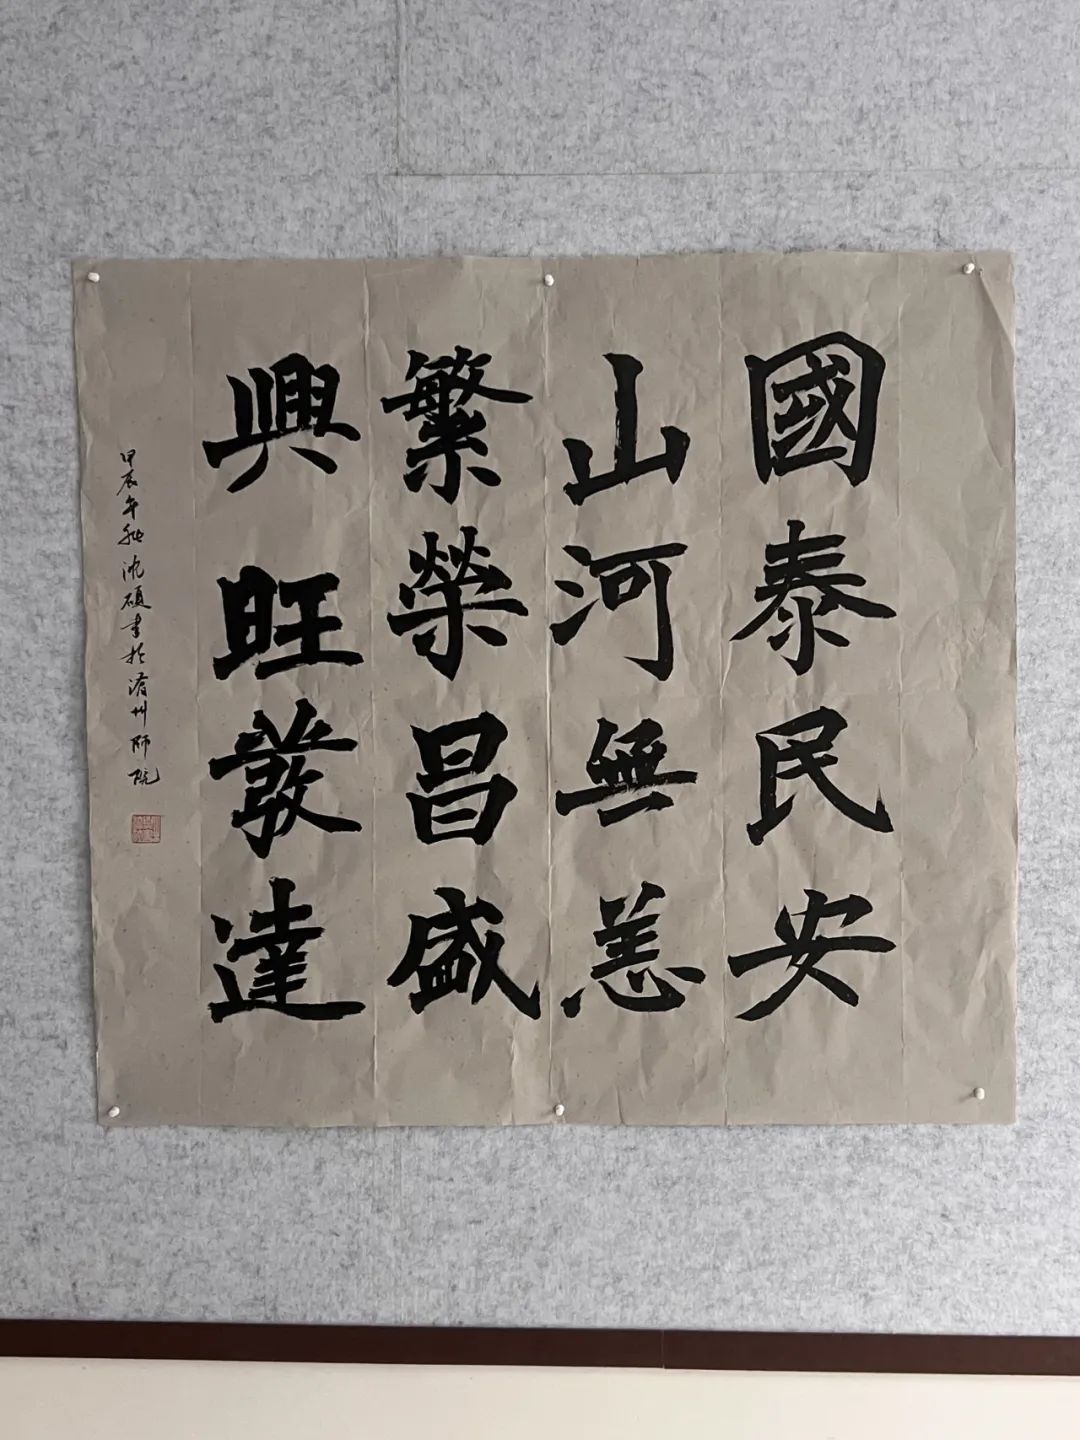 國泰民安
山河無恙
繁榮昌盛
興旺發達
甲辰年秋沈碩書於滄州師院